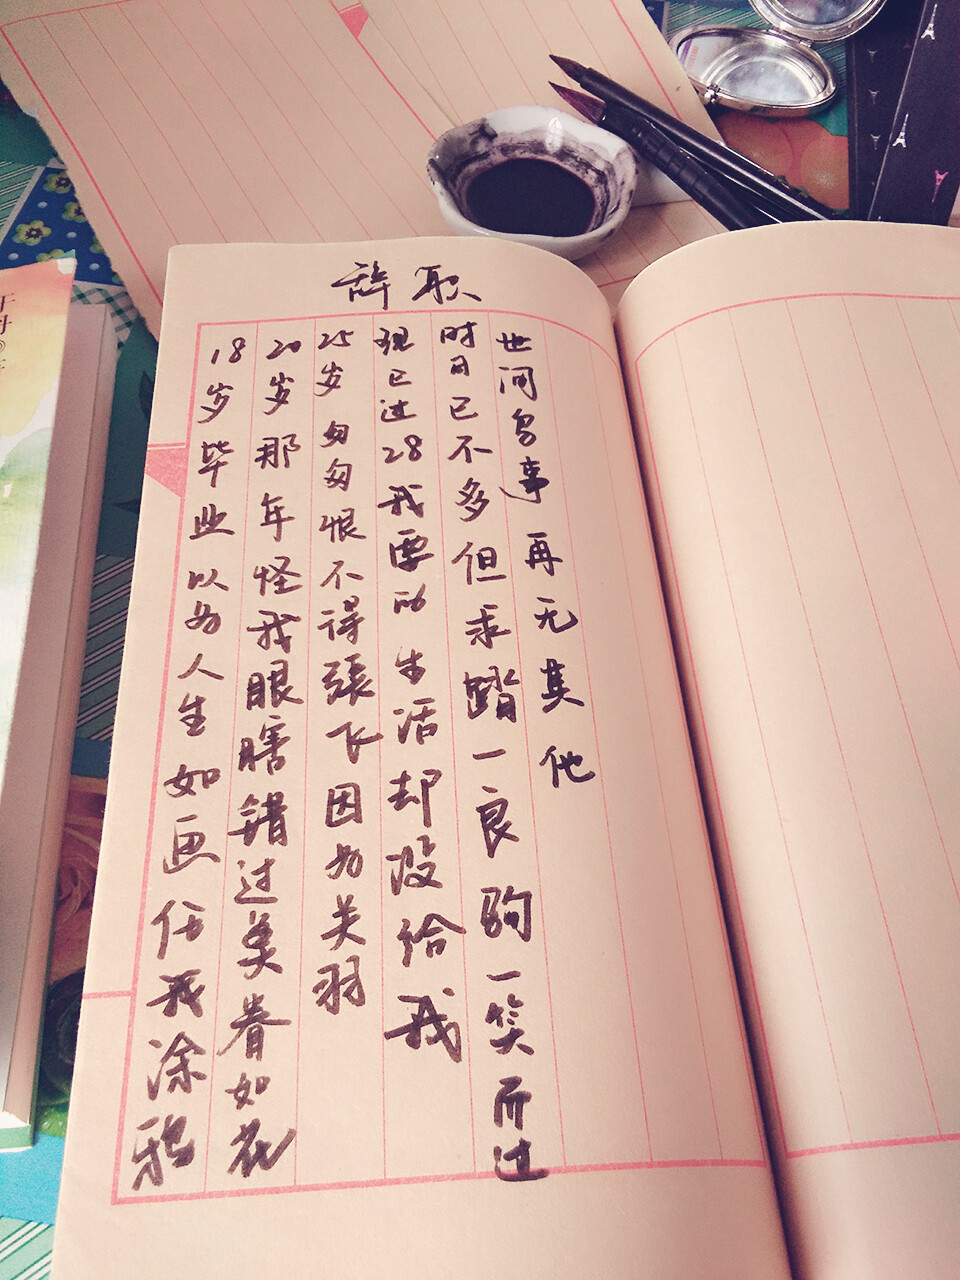 辞职
18岁毕业以为人生如画任我涂鸦
20岁那年怪我眼瞎错过美眷如花
25岁匆匆恨不得張飞因为关羽
现已过28我要的生活却没给我
时日已不多但求踏一良驹一笑而过
世间多事再无其他
于丹